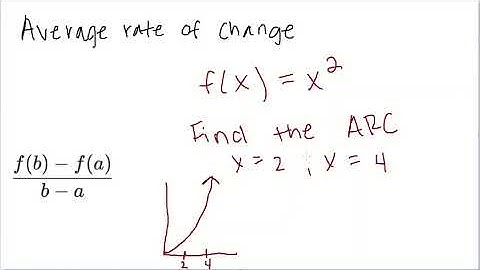 Average rate of change
f(x) = x²
Find the ARC
x = 2 ; x = 4
f(b) − f(a)
b − a
2 4